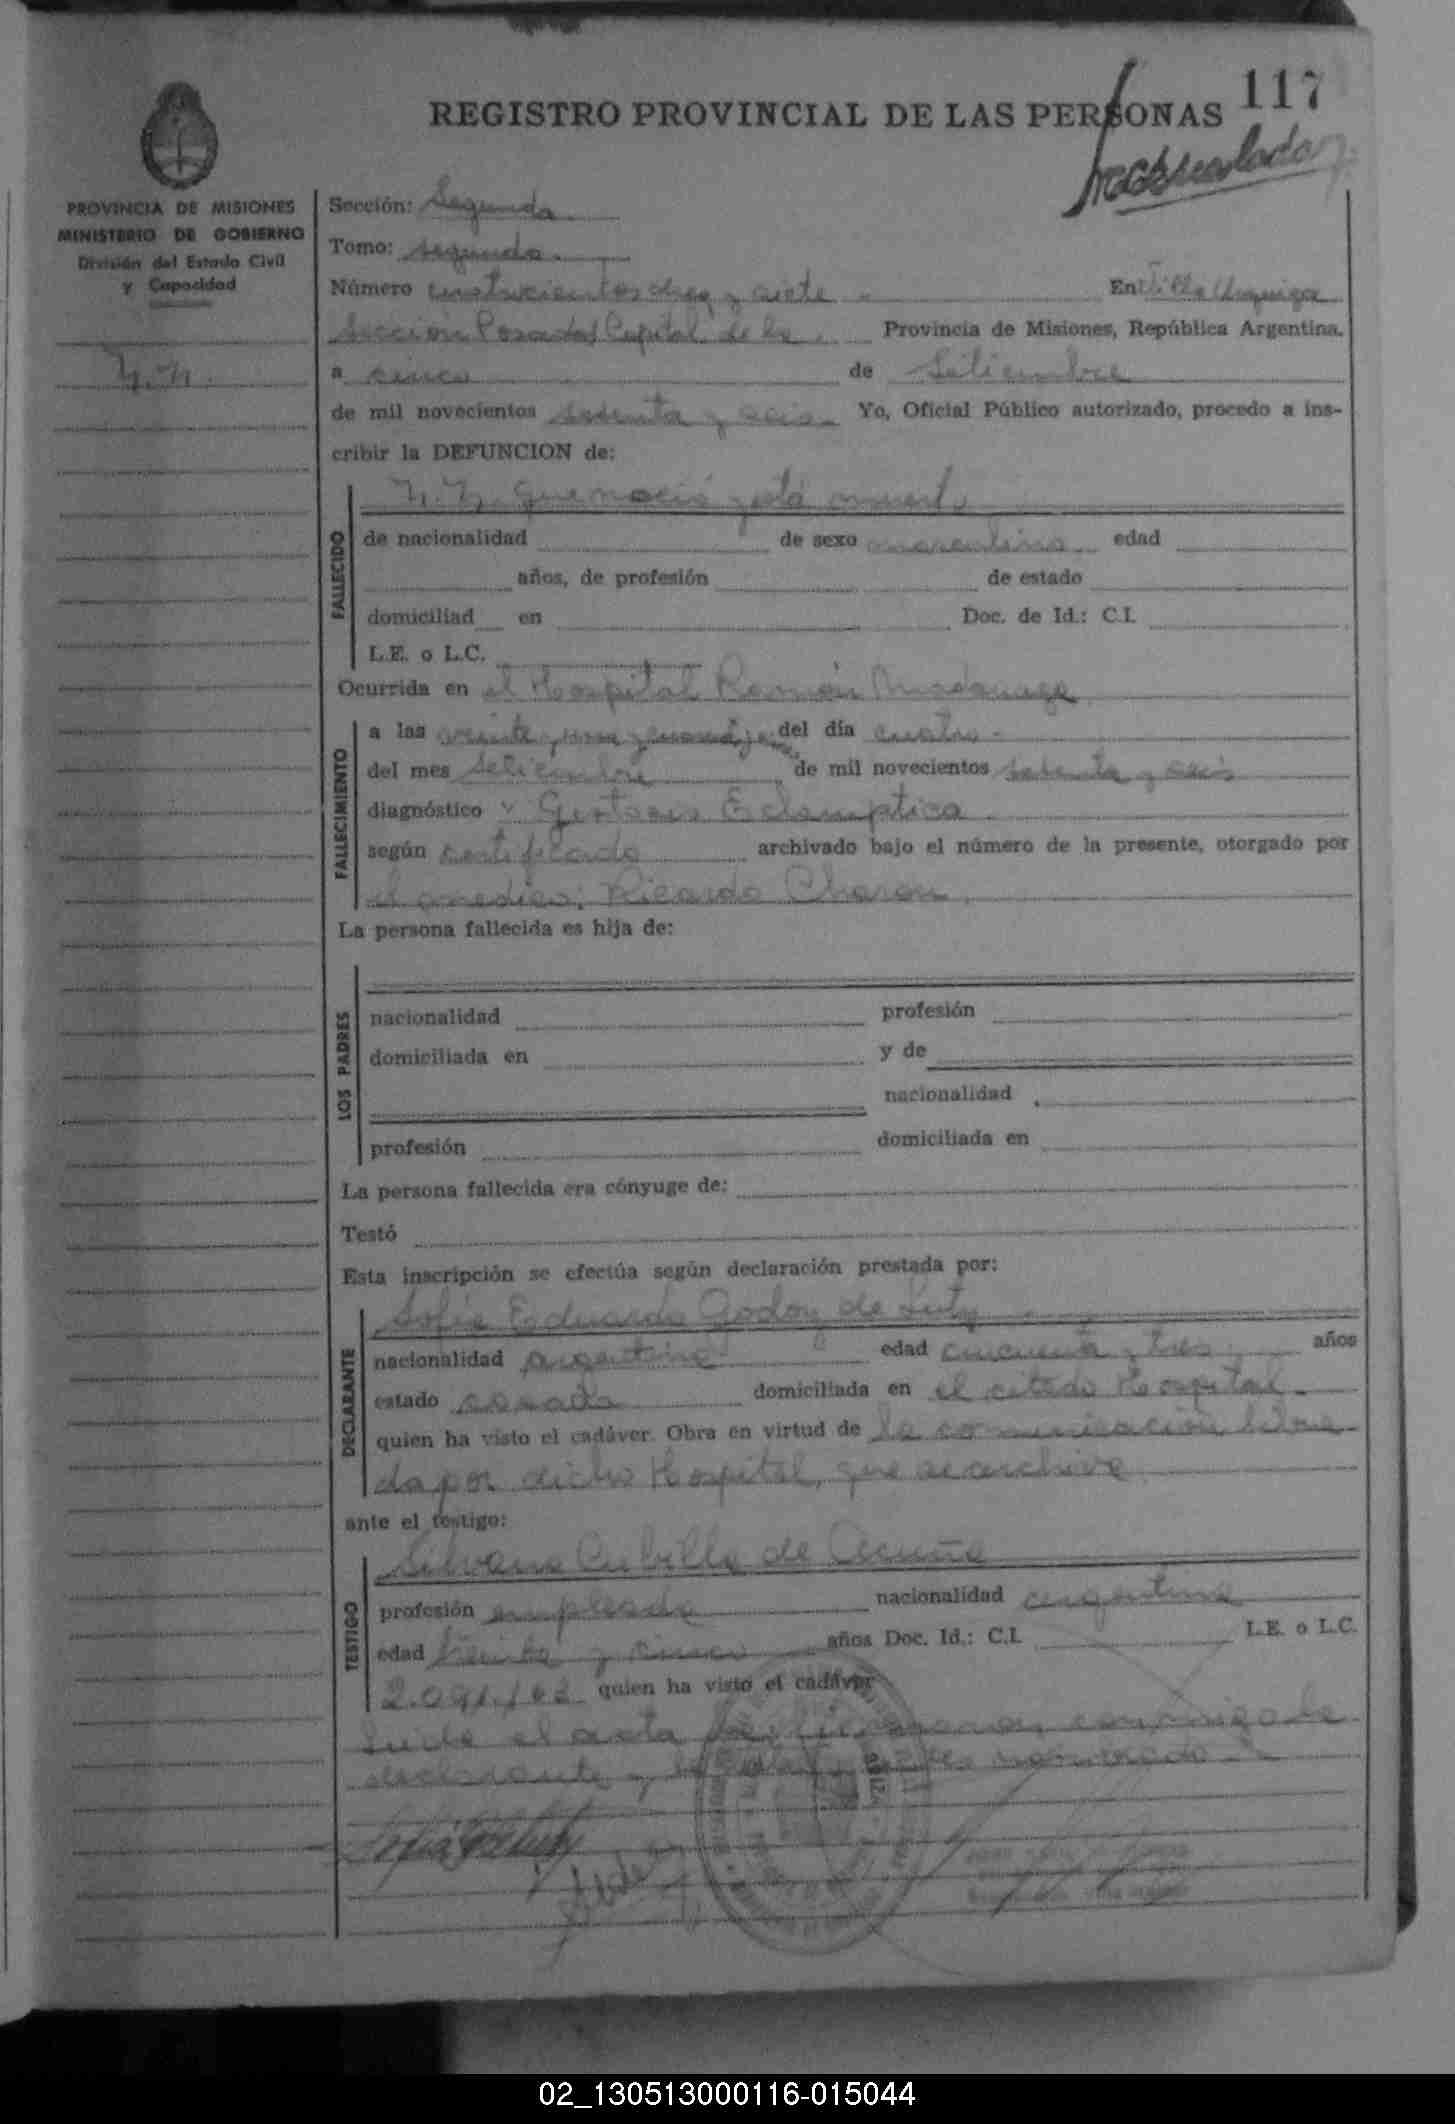 117
REGISTRO PROVINCIAL DE LAS PERSONAS
PROVINCIA DE MISIONES
MINISTERIO DE GOBIERNO
División del Estado Civil
y Capacidad
N.N.
Sección: Segunda
Tomo: segundo.
Número cuatrocientos diez y siete En Villa Urquiza
Sección Posadas Capital de la Provincia de Misiones, República Argentina.
a cinco de Setiembre
de mil novecientos setenta y seis Yo, Oficial Público autorizado, procedo a ins-
cribir la DEFUNCION de:
N.N. que nació y está muerto
FALLECIDO
de nacionalidad de sexo masculino edad
años, de profesión de estado
domiciliad en Doc. de Id.: C.I.
L.E. o L.C.
Ocurrida en el Hospital Ramón Madariaga
FALLECIMIENTO
a las veinte y una y del día cuatro
del mes Setiembre de mil novecientos setenta y seis
diagnóstico Gestosis Eclamptica
según certificado archivado bajo el número de la presente, otorgado por
el medico: Ricardo
La persona fallecida es hija de:
LOS PADRES
nacionalidad profesión
domiciliada en y de
nacionalidad
profesión domiciliada en
La persona fallecida era cónyuge de:
Testó
Esta inscripción se efectúa según declaración prestada por:
Sofia Eduarda Godoy de Lutz
DECLARANTE
nacionalidad argentina edad cincuenta y tres años
estado casada domiciliada en el citado Hospital
quien ha visto el cadáver. Obra en virtud de la comunicación libra
da por dicho Hospital, que se archiva
ante el testigo:
Silvana Cubilla de Acuña
TESTIGO
profesión empleada nacionalidad argentina
edad treinta y cinco años Doc. Id.: C.I. L.E. o L.C.
2.091.163 quien ha visto el cadáver
Leida el acta la firmaron conmigo la
declarante y el nombrado
02_130513000116-015044